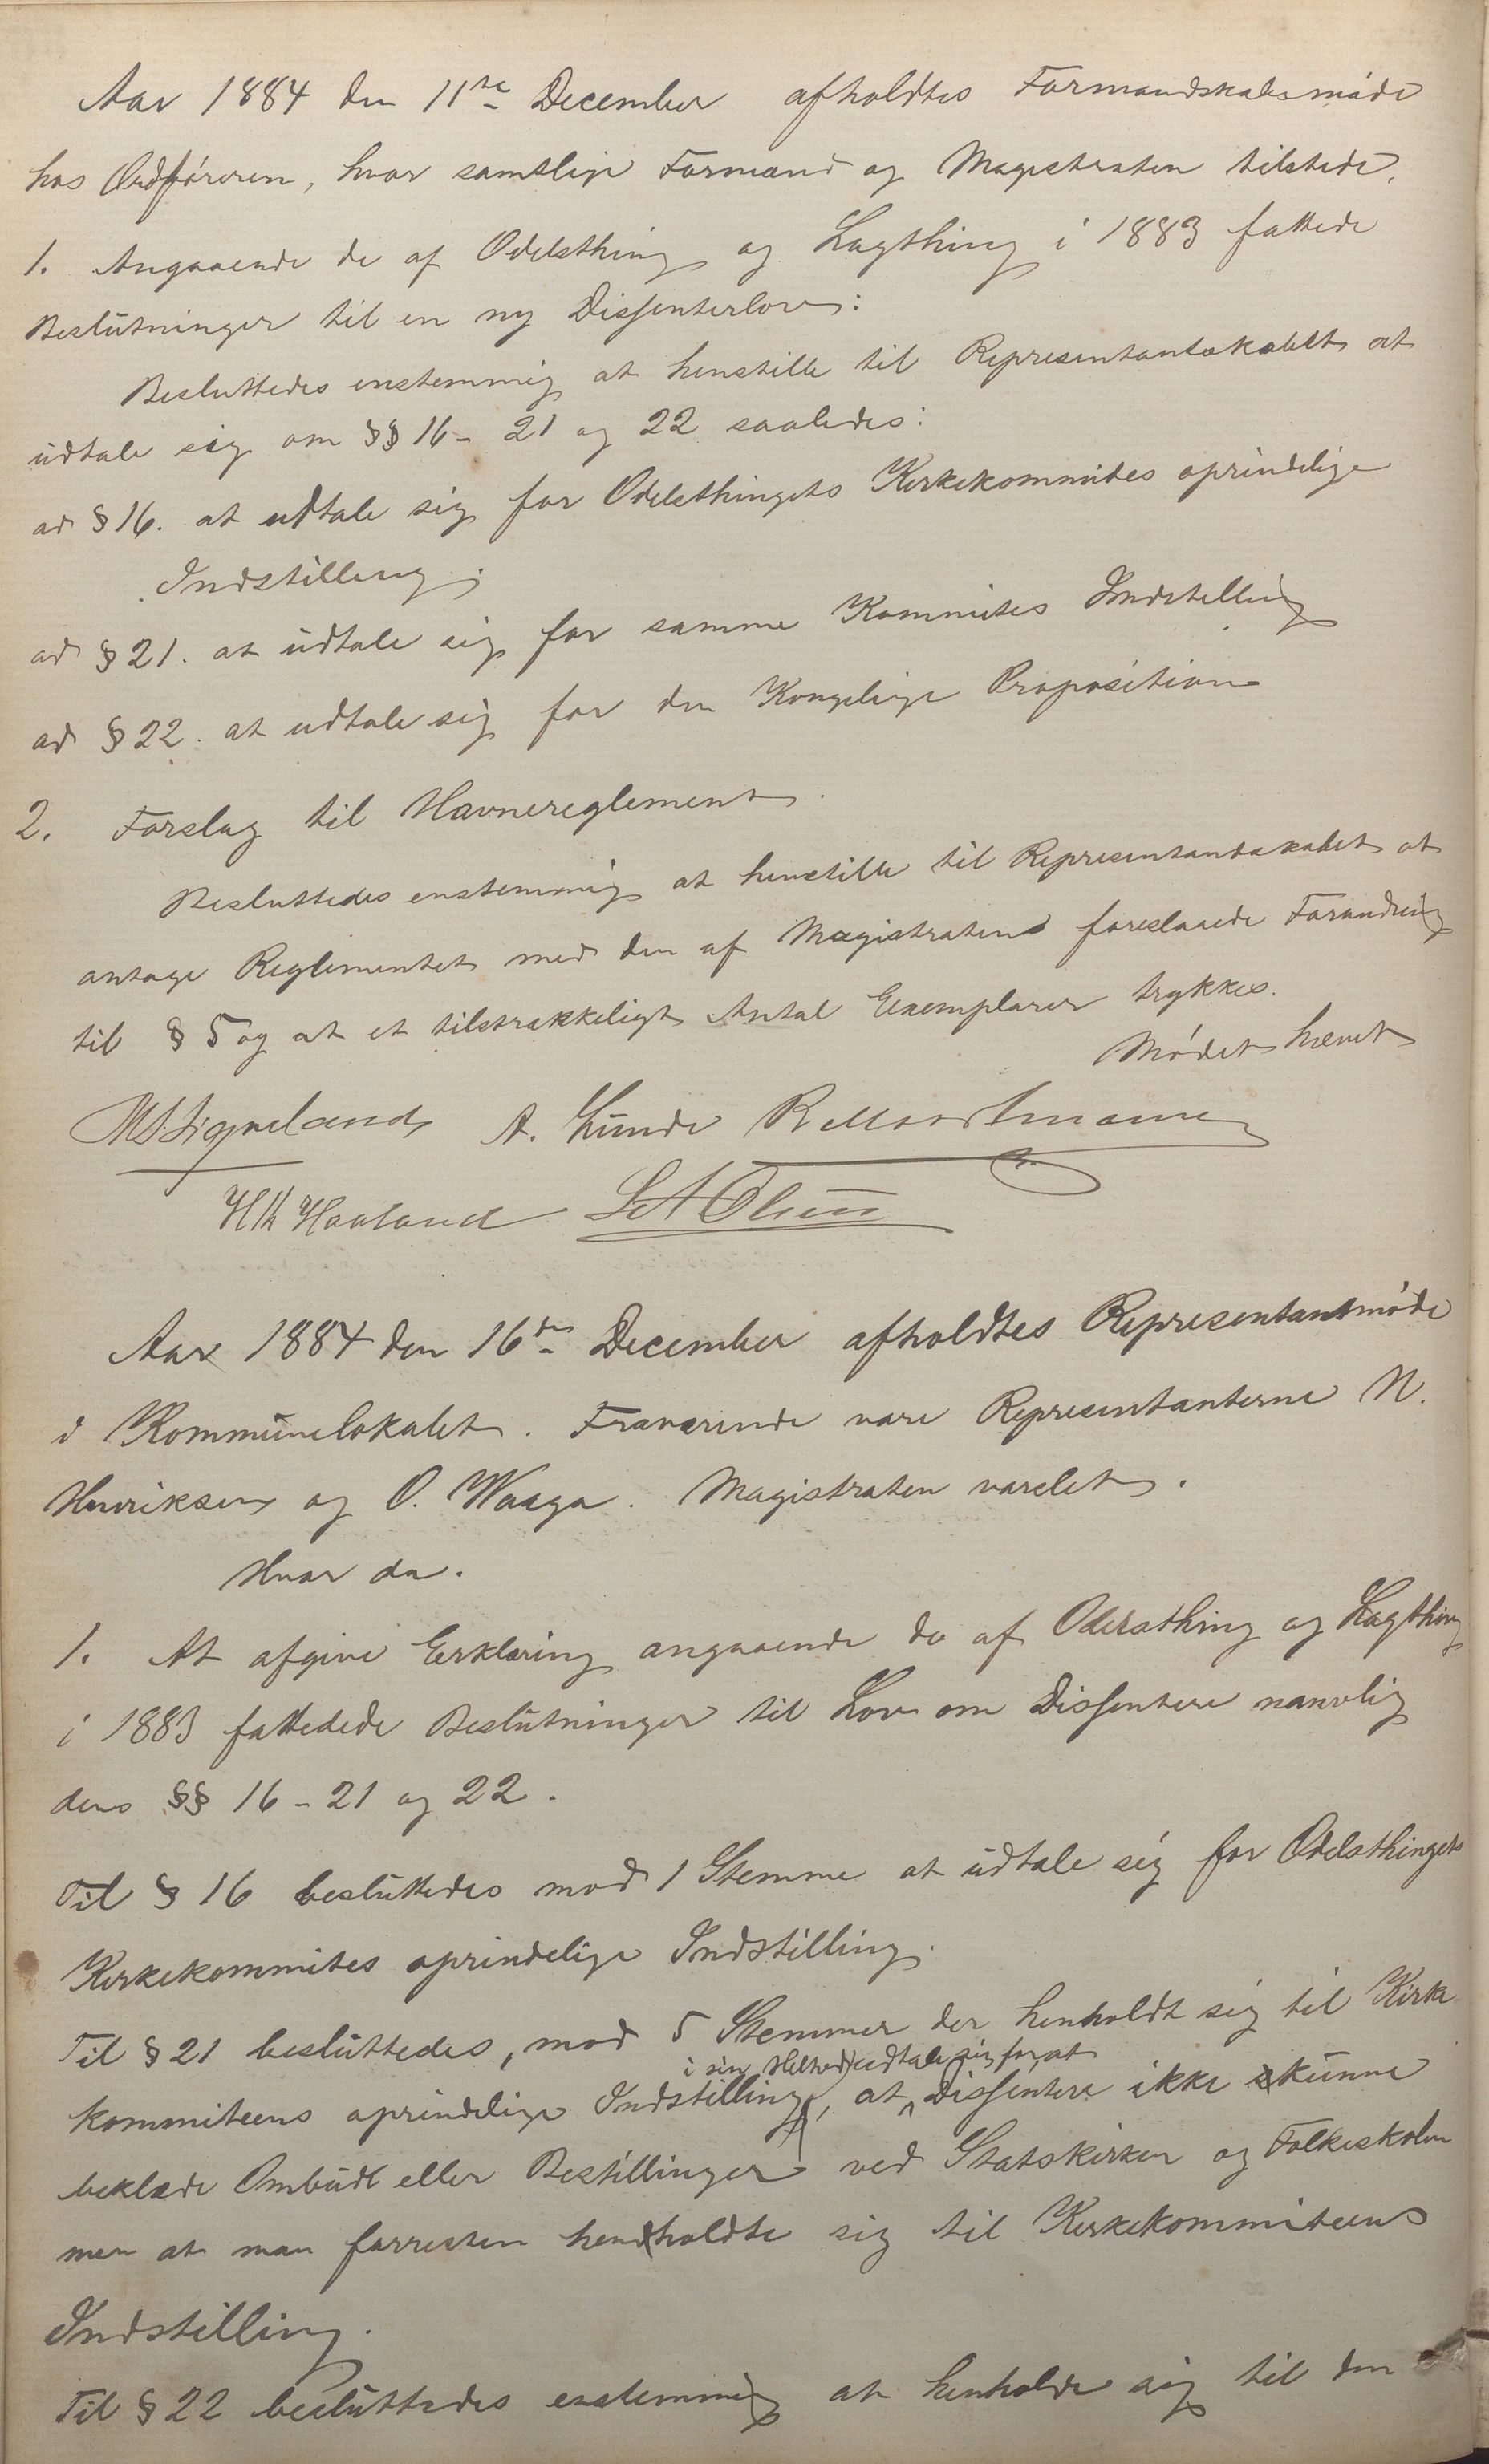 Aar 1884 den 11te December afholdtes Formandskabsmøde
hos Ordføreren, hvor samtlige Formænd og Magistraten tilstede.
1. Angaaende de af Odelsthing og Lagthing i 1883 fattede
Beslutninger til en ny Dissenterlov:
Besluttedes enstemmig at henstille til Representantskabet at
udtale sig om §§ 16 - 21 og 22 saaledes:
ad § 16. at udtale sig for Odelsthingets Kirkekommites oprindelige
Indstilling;
ad § 21. at udtale sig for samme Kommites Indstilling
ad § 22. at udtale sig for den Kongelige Proposition
2. Forslag til Havnereglement.
Besluttedes enstemmig at henstille til Representantskabet at
antage Reglementet med den af Magistraten foreslaaede Forandring
til § 5 og at et tilstrækkeligt Antal Exemplarer trykkes.
Mødet hævet
A. Lunde
H Th Haaland
Aar 1884 den 16de December afholdtes Representantmøde
i Kommunelokalet. Fraværende vare Representanterne N.
Henriksen og O. Waage. Magistraten varslet.
Hvor da.
1. At afgive Erklæring angaaende de af Odelsthing og Lagthing
i 1883 fattedede Beslutninger til Lov om Dissentere navnlig
dens §§ 16 - 21 og 22.
Til § 16 besluttedes mod 1 Stemme at udtale sig for Odelsthingets
Kirkekommites oprindelige Indstilling.
Til § 21 besluttedes, mod 5 Stemmer der henholdt sig til Kirke
i sin Helhed, udtale sig for, at
kommiteens oprindelige Indstilling, at Dissentere ikke kunne
beklæde Ombud eller Bestillinger ved Statskirken og Folkeskolen
men at man forresten henholdte sig til Kirkekommiteens
Indstilling.
Til § 22 besluttedes enstemmig at henholde sig til den